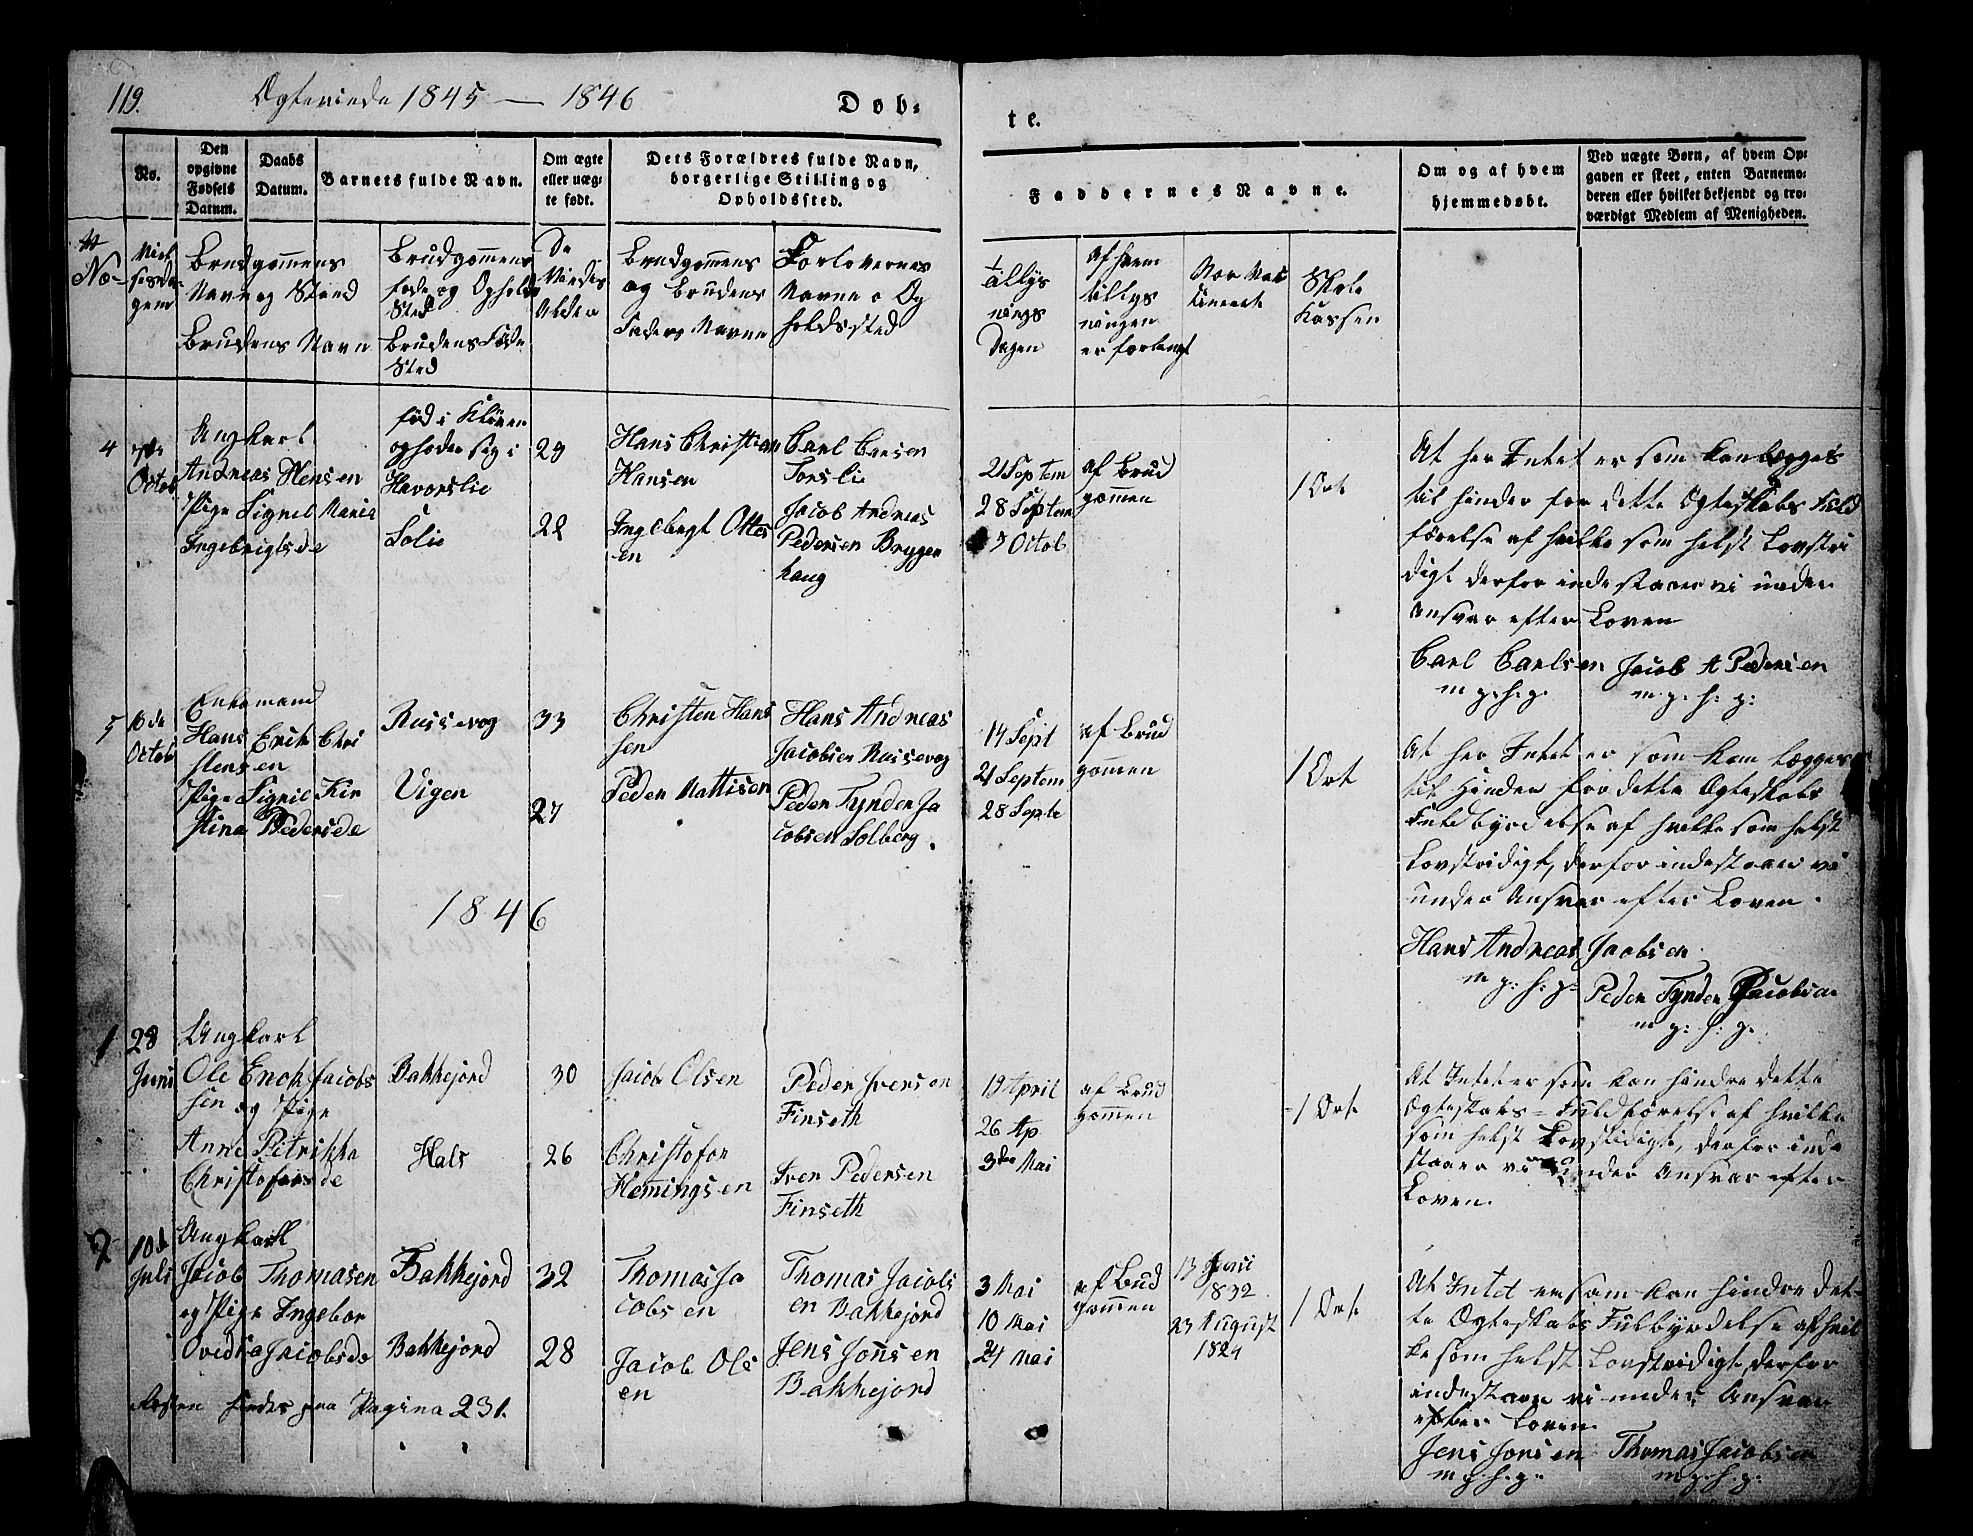 119.
Ægteviede 1845 — 1846
Døb-
te.
No.
Den
opgivne
Fødsels
Datum.
Daabs
Datum.
Barnets fulde Navn.
Om ægte
eller uæg-
te født.
Dets Forældres fulde Navn,
borgerlige Stilling og
Opholdssted.
Faddernes Navne.
Om og af hvem
hjemmedøbt.
Ved uægte Børn, af hvem Op-
gaven er skeet, enten Barnemo-
deren eller hvilket bekjendt og tro-
værdigt Medlem af Menigheden.
No
Viel
sesda
gen
Brudgommens
Navn og Stand
Brudens Navn
Brudgommens
føde og Opholds
Sted
Brudens Føde
Sted
De
Viedes
Alder
Brudgommens
og Brudens
Faders Navne
Forlovernes
Navne o Op
holdssted
Tillys
nings
Dagen
Af hvem
tillys
ningen
er forlangt
Naar Vac
cineret
Skole
Kassen
4
Octob
Ungkarl
Andreas Hensen
Pige Signel Maria
Ingebrigtsde
opholder sig i
Havorslie
Solie
29
22
Hans Christian
Hansen
Ingebrgt Ottes
en
Carl Carsen
Torslie
Jacob Andreas
Pedersen Bryggen
haug
21 Septem
28 Septem
5 Octob
af Brud
gommen
1 Ort
At her Intet er som kan lægges
til hinder for dette Ægteskabs Fuld
førelse af hvilke som helst Lovstri
digt derfor indestaaer vi under
Ansvar efter Loven
Carl Carlsen Jacob A Pedersen
m. p. h. p. m. p. h. p.
5
10de
Octob
Enkemand
Hans Erich Chri
stensen
Pige Sigril Kir
stina Pedersde
Russevog
Vigen
33
27
Christen Hans
sen
Peder Mattisen
Hans Andreas
Jacobsen Russevog
Peder Tynder Ja
cobsen Solberg.
14 Sept
21 Septem
28 Septe
af Brud
gommen
1 Ort
At her Intet er som kan lægges
til Hinder for dette Ægteskabs
Fuldbyrdelse af hvilke som helst
Lovstridigt, derfor indestaaer vi
under Ansvar efter Loven.
Hans Andreas Jacobsen
m. p. h. p. Peder Tynder Jacobsen
m. p. h. p.
1846
1
28
Juni
Ungkarl
Ole Enok Jacobs
sen og Pige
Anne Pitrikka
Christofersde
Bakkejord
Hals
30
26
Jacob Olsen
Christofor
Hemingsen
Peder Iversen
Finseth
Iver Pedersen
Finseth
19 April
26 Ap
3die Mai
af Brud
gommen
1 Ort
At Intet er som kan hindre dette
Ægteskabs Fuldførelse af hvilke
som helst Lovstridigt, derfor inde
staaer vi under Ansvar efter
Loven.
2
10de
Juli
Ungkarl
Jacob Thomasen
og Pige Ingebor
Ovedia Jacobsde
Bakkejord
Bakkejord
32
28
Thomas Ja
cobsen
Jacob Ols
en
Thomas Jacobs
en Bakkejord
Jens Jonsen
Bakkejord
3 Mai
10 Mai
24 Mai
af Brud
gommen
13 Juni
1832
23 August
1824
1 Ort
At Intet er som kan hindre det-
te Ægteskabs Fulbyrdelse af hvil
ke som helst Lovstridigt, derfor
indestaaer vi under Ansvar
efter Loven
Jens Jonsen Thomas Jacobsen
m. p. h. p. m. p. h. p.
Resten findes paa Pagina 231.